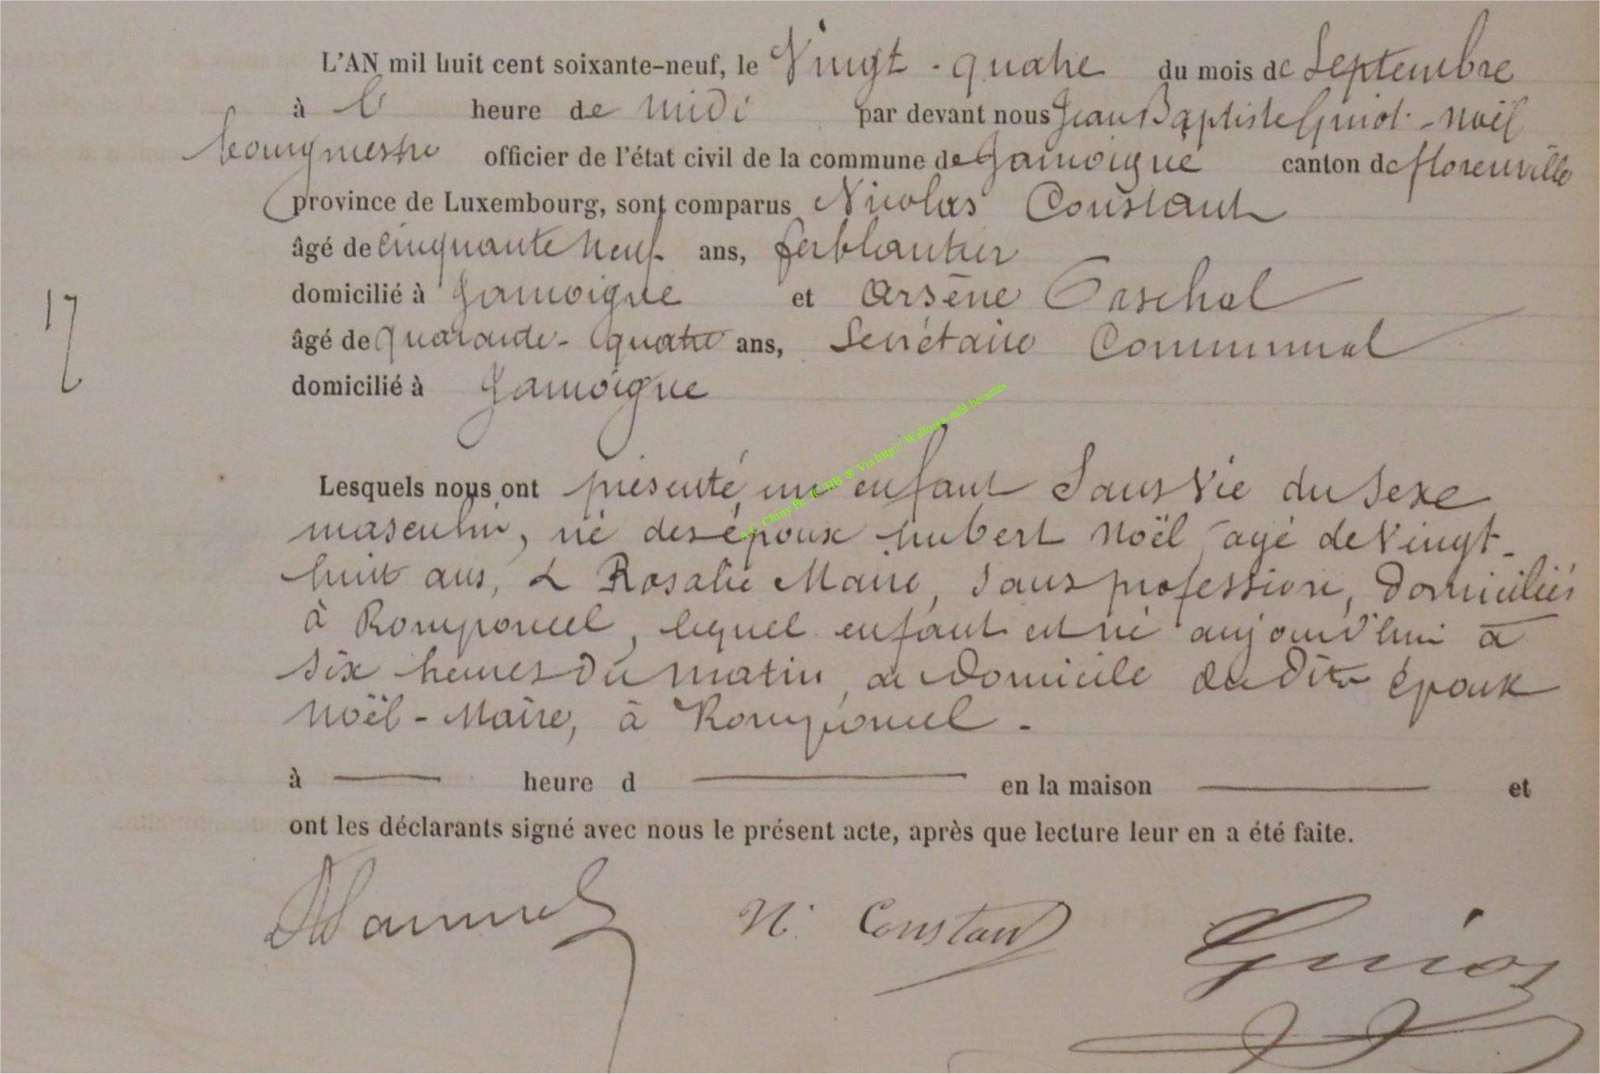 L'AN mil huit cent soixante-neuf, le Vingt-quatre du mois de Septembre
à l' heure de midi par devant nous Jean Baptiste Guiot-Noël
bourgmestre officier de l'état civil de la commune de Jamoigne canton de florenville
province de Luxembourg, sont comparus Nicolas Constant
âgé de cinquante neuf ans, ferblantier
domicilié à Jamoigne et Arsène Paschal
17
âgé de quarante-quatre ans, Secrétaire Communal
domicilié à Jamoigne
Lesquels nous ont présenté un enfant Sans Vie du Sexe
masculin, né des époux hubert Noël, agé de Vingt-
huit ans, & Rosalie Maire, Sans profession, domiciliés
à Romponcel, lequel enfant est né aujourd'hui à
six heures du matin, au domicile des dits époux
Noël-Maire, à Romponcel.
à heure d en la maison et
ont les déclarants signé avec nous le présent acte, après que lecture leur en a été faite.
N. Constant Guiot